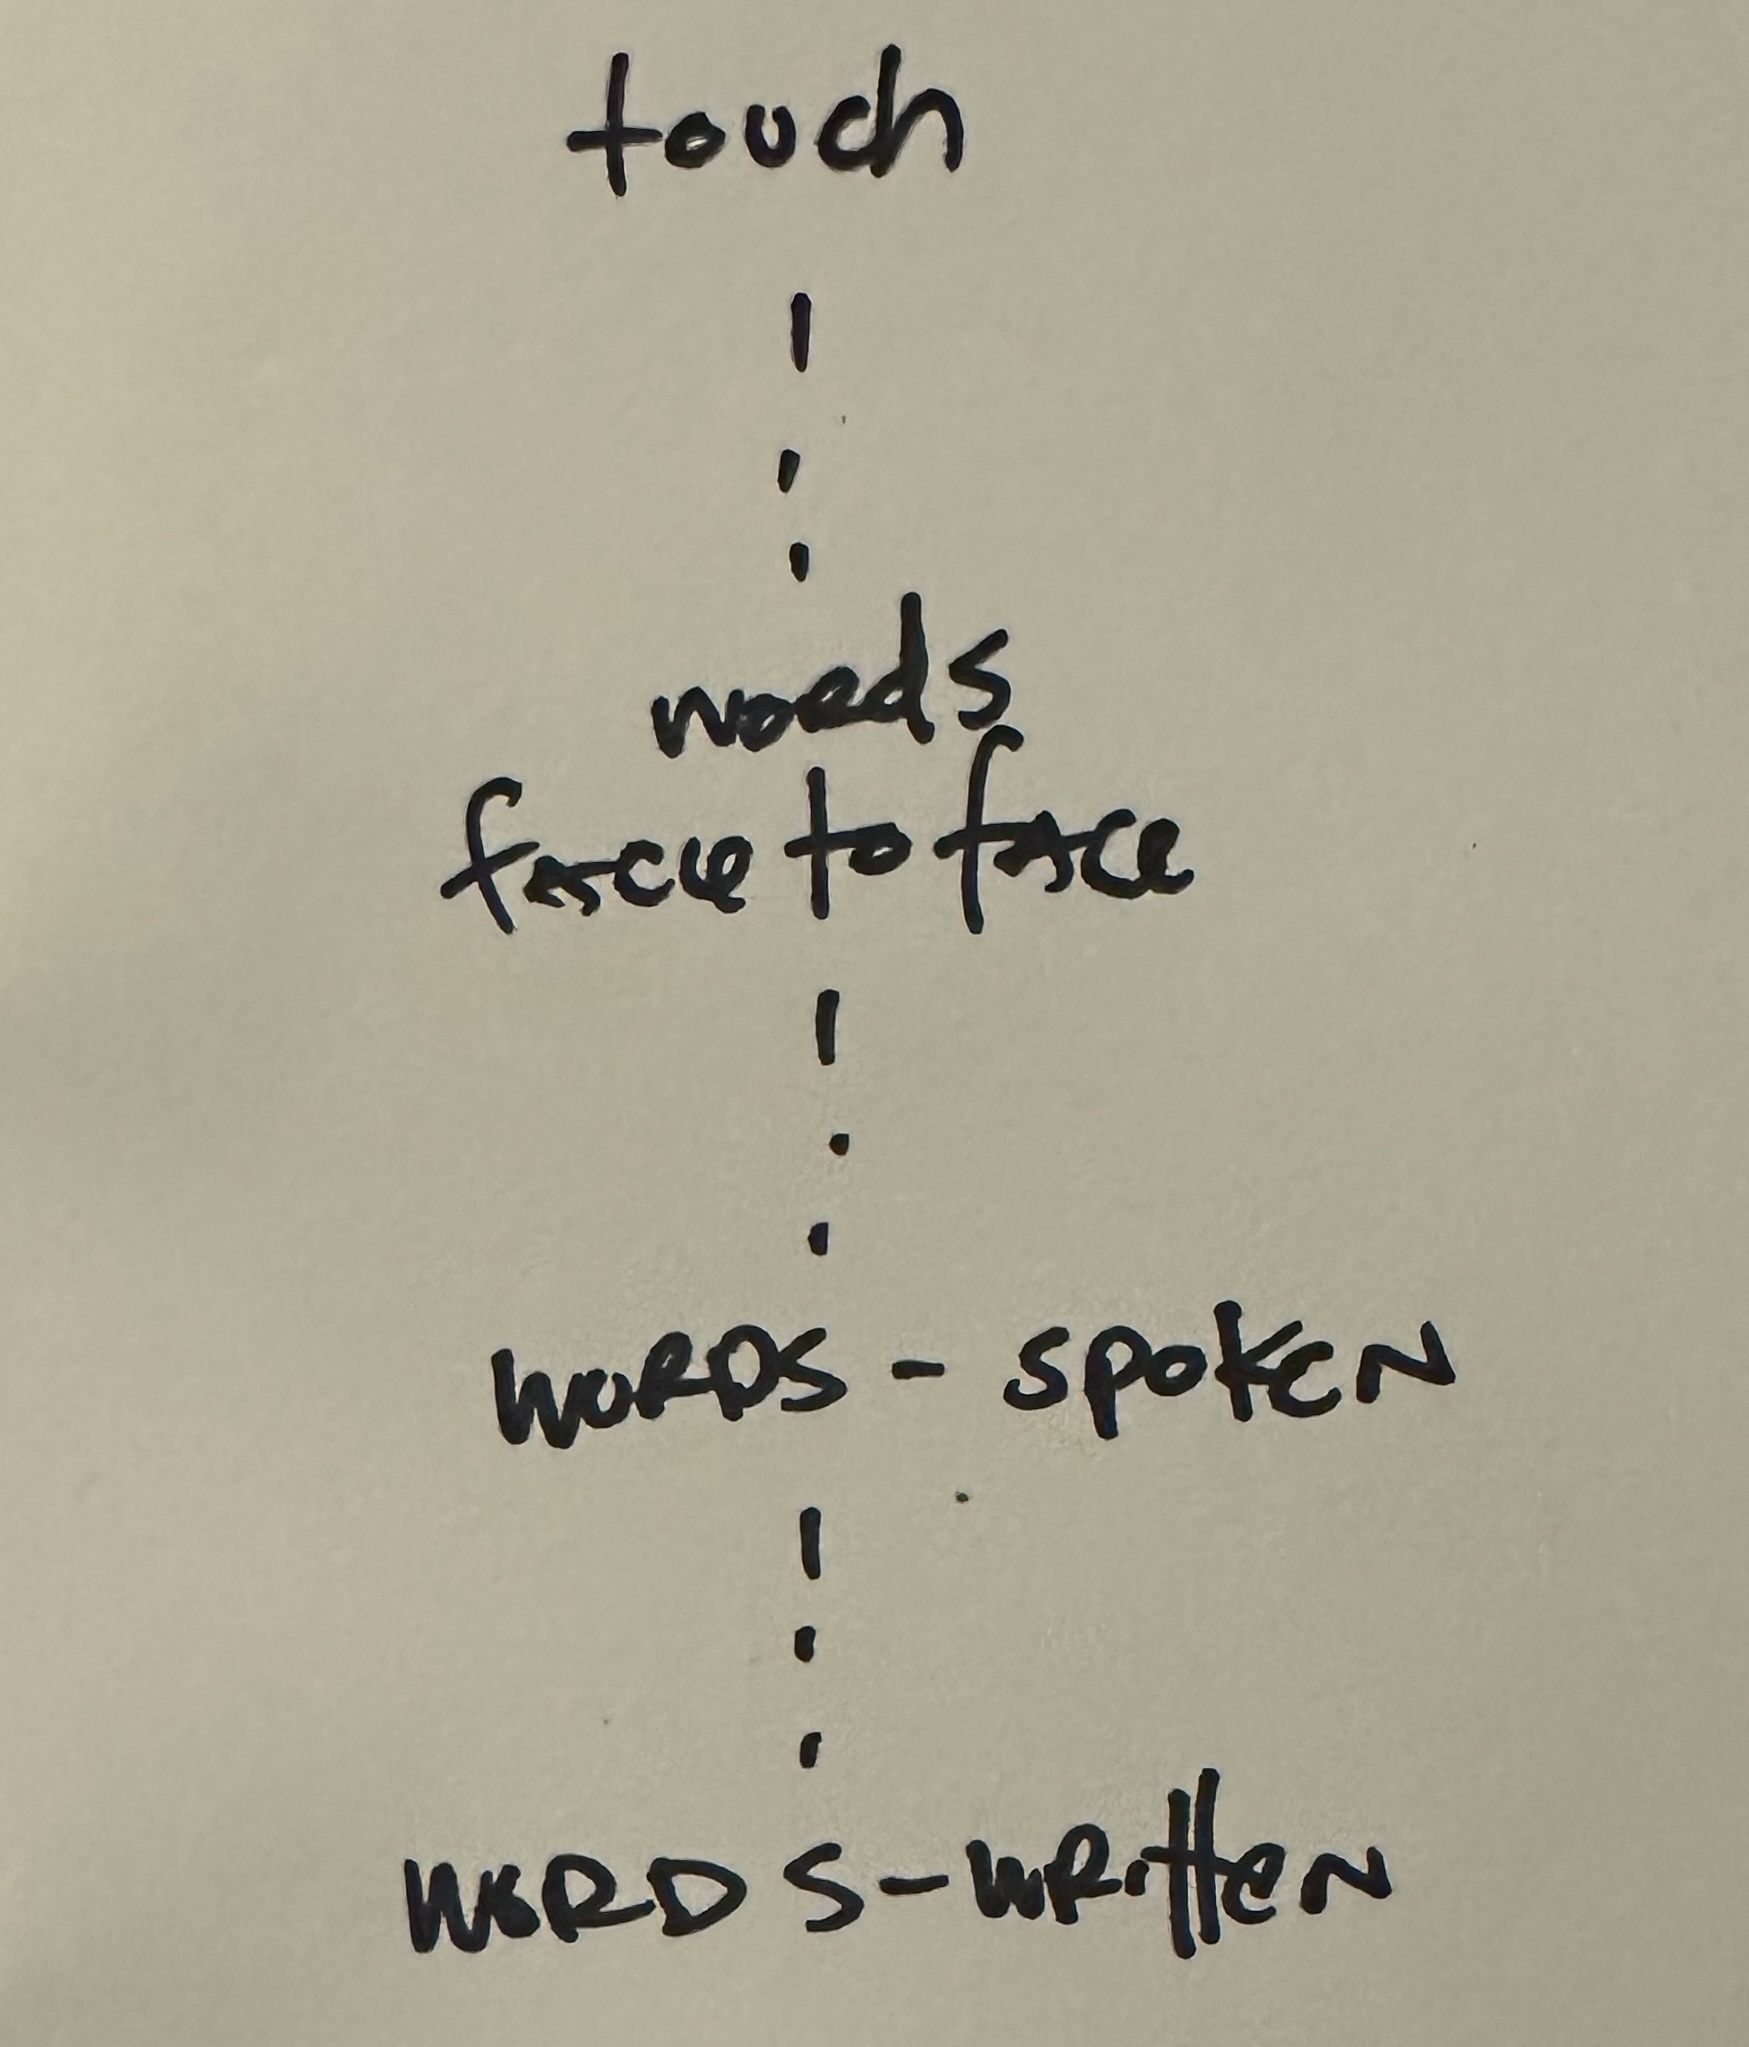 touch
words
face to face
WORDS - SPOKEN
WORDS - WRitteN